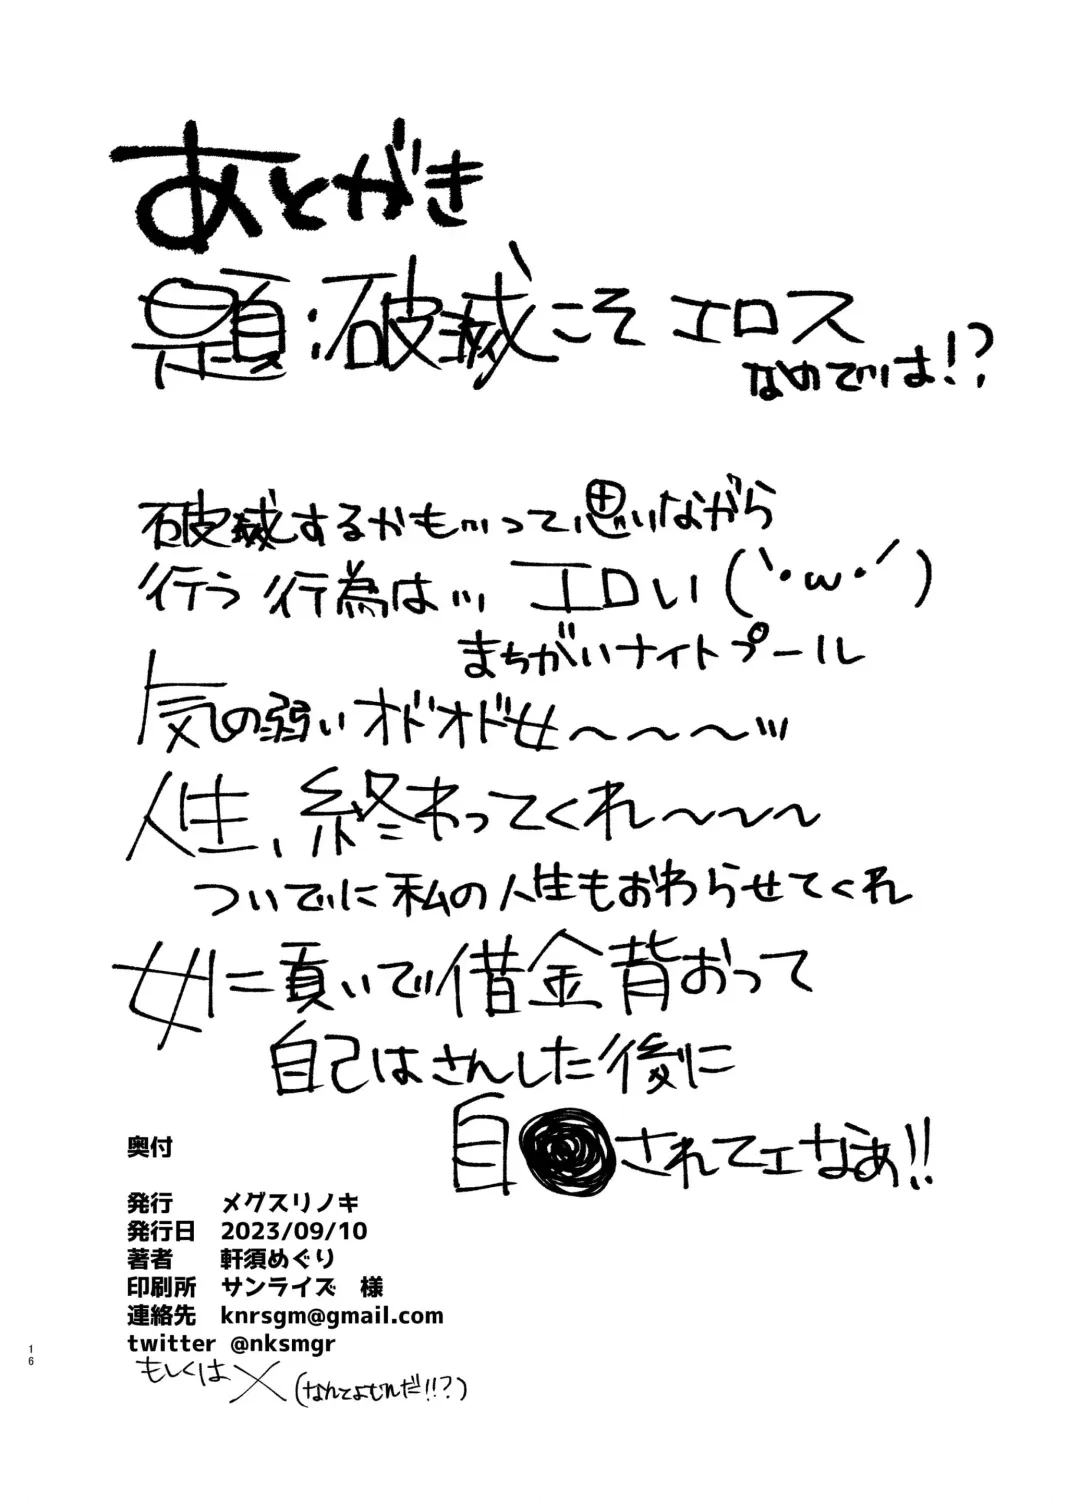 あとがき
題:破滅こそエロス
なのでは!?
破滅するかもいって思いながら
行う行為はッエロい(`・ω・´)
まちがいナイトプール
気の弱いオドオド女~~~ッ
人生、終わってくれ~~~
ついでに私の人生もおわらせてくれ
女に貢いで借金背おって
自己はさんした後に
自●されてエなあ!!
奥付
発行 メグスリノキ
発行日 2023/09/10
著者 軒須めぐり
印刷所 サンライズ 様
連絡先 knrsgm@gmail.com
twitter @nksmgr
もしくはX(なんてよむんだ!!?)
16